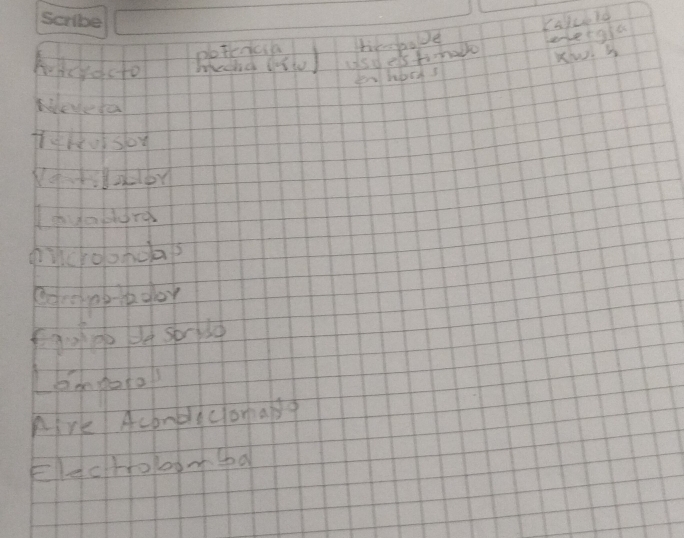 Scribe
Artefacto potencia media (KW) tiempo de uso estimado en horas Calculo energia KW.h
Nevera
Televisor
Ventilador
Lavadora
microondas
Computador
Equipo de sonido
Lámpara
Aire Acondicionado
Electrobomba